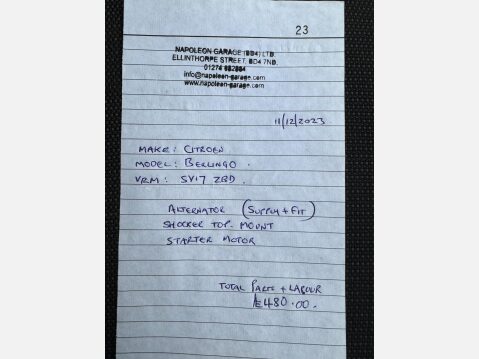 23
NAPOLEON GARAGE (BD4) LTD.
ELLINTHORPE STREET. BD4 7ND.
01274 682864
info@napoleon-garage.com
www.napoleon-garage.com
11/12/2023
MAKE: CITROEN
MODEL: BERLINGO.
VRM: SV17 ZBD.
ALTERNATOR (SUPPLY + FIT)
SHOCKER TOP. MOUNT
STARTER MOTOR
TOTAL PARTS + LABOUR
£480.00.